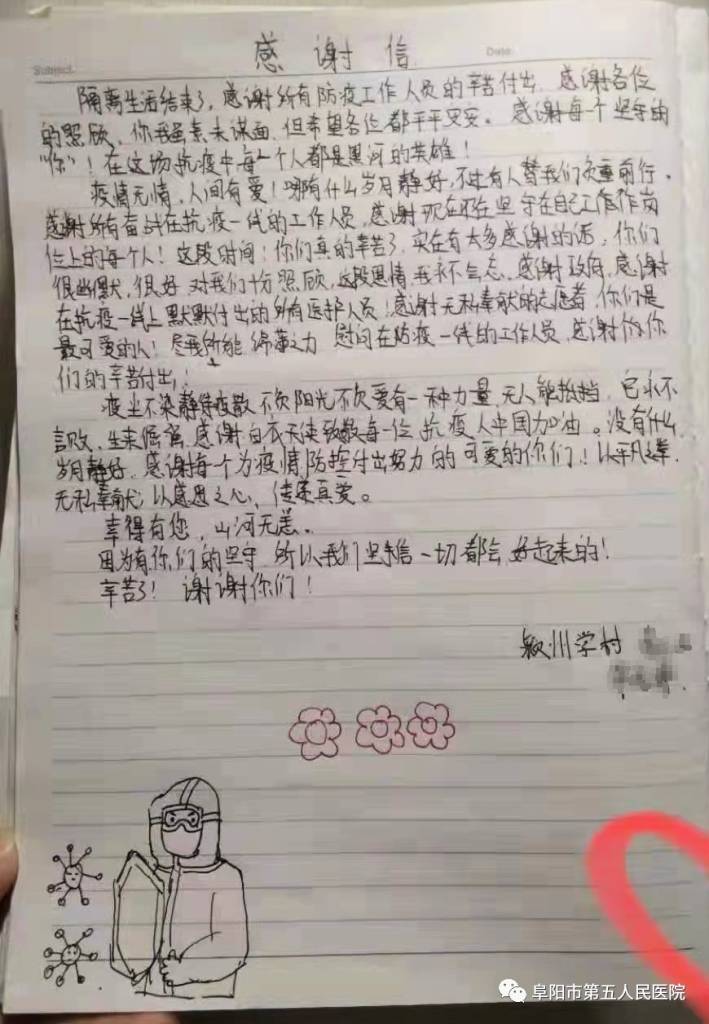 感谢信
Subject:
Date:
隔离生活结束了，感谢所有防疫工作人员的辛苦付出，感谢各位
的照顾，你我虽素未谋面，但希望各位都平平安安。感谢每个坚守的
“你”！在这场抗疫中每个人都是黑河的英雄！
疫情无情，人间有爱！哪有什么岁月静好，不过有人替我们负重前行。
感谢所有奋战在抗疫一线的工作人员，感谢现在还在坚守在自己工作岗
位上的每个人！这段时间！你们真的辛苦了，实在有太多感谢的话，你们
很幽默，很好，对我们十分照顾，这段恩情，我永不会忘，感谢政府，感谢
在抗疫一线上默默付出的所有医护人员！感谢无私奉献的志愿者，你们是
最可爱的人！尽我所能，绵薄之力，慰问在防疫一线的工作人员，感谢你
们的辛苦付出！
疫尘不染静待疫散，不负阳光不负爱有一种力量，无人能抵挡，它永不
言败，生来倔强，感谢白衣天使致敬每一位抗疫人中国加油。没有什么
岁月静好，感谢每个为疫情防控付出努力的可爱的你们！以平凡之举，
无私奉献，以感恩之心，传递真爱。
幸得有您，山河无恙。
因为有你们的坚守，所以我们坚信一切都会好起来的！
辛苦了！谢谢你们！
颍州学村
阜阳市第五人民医院